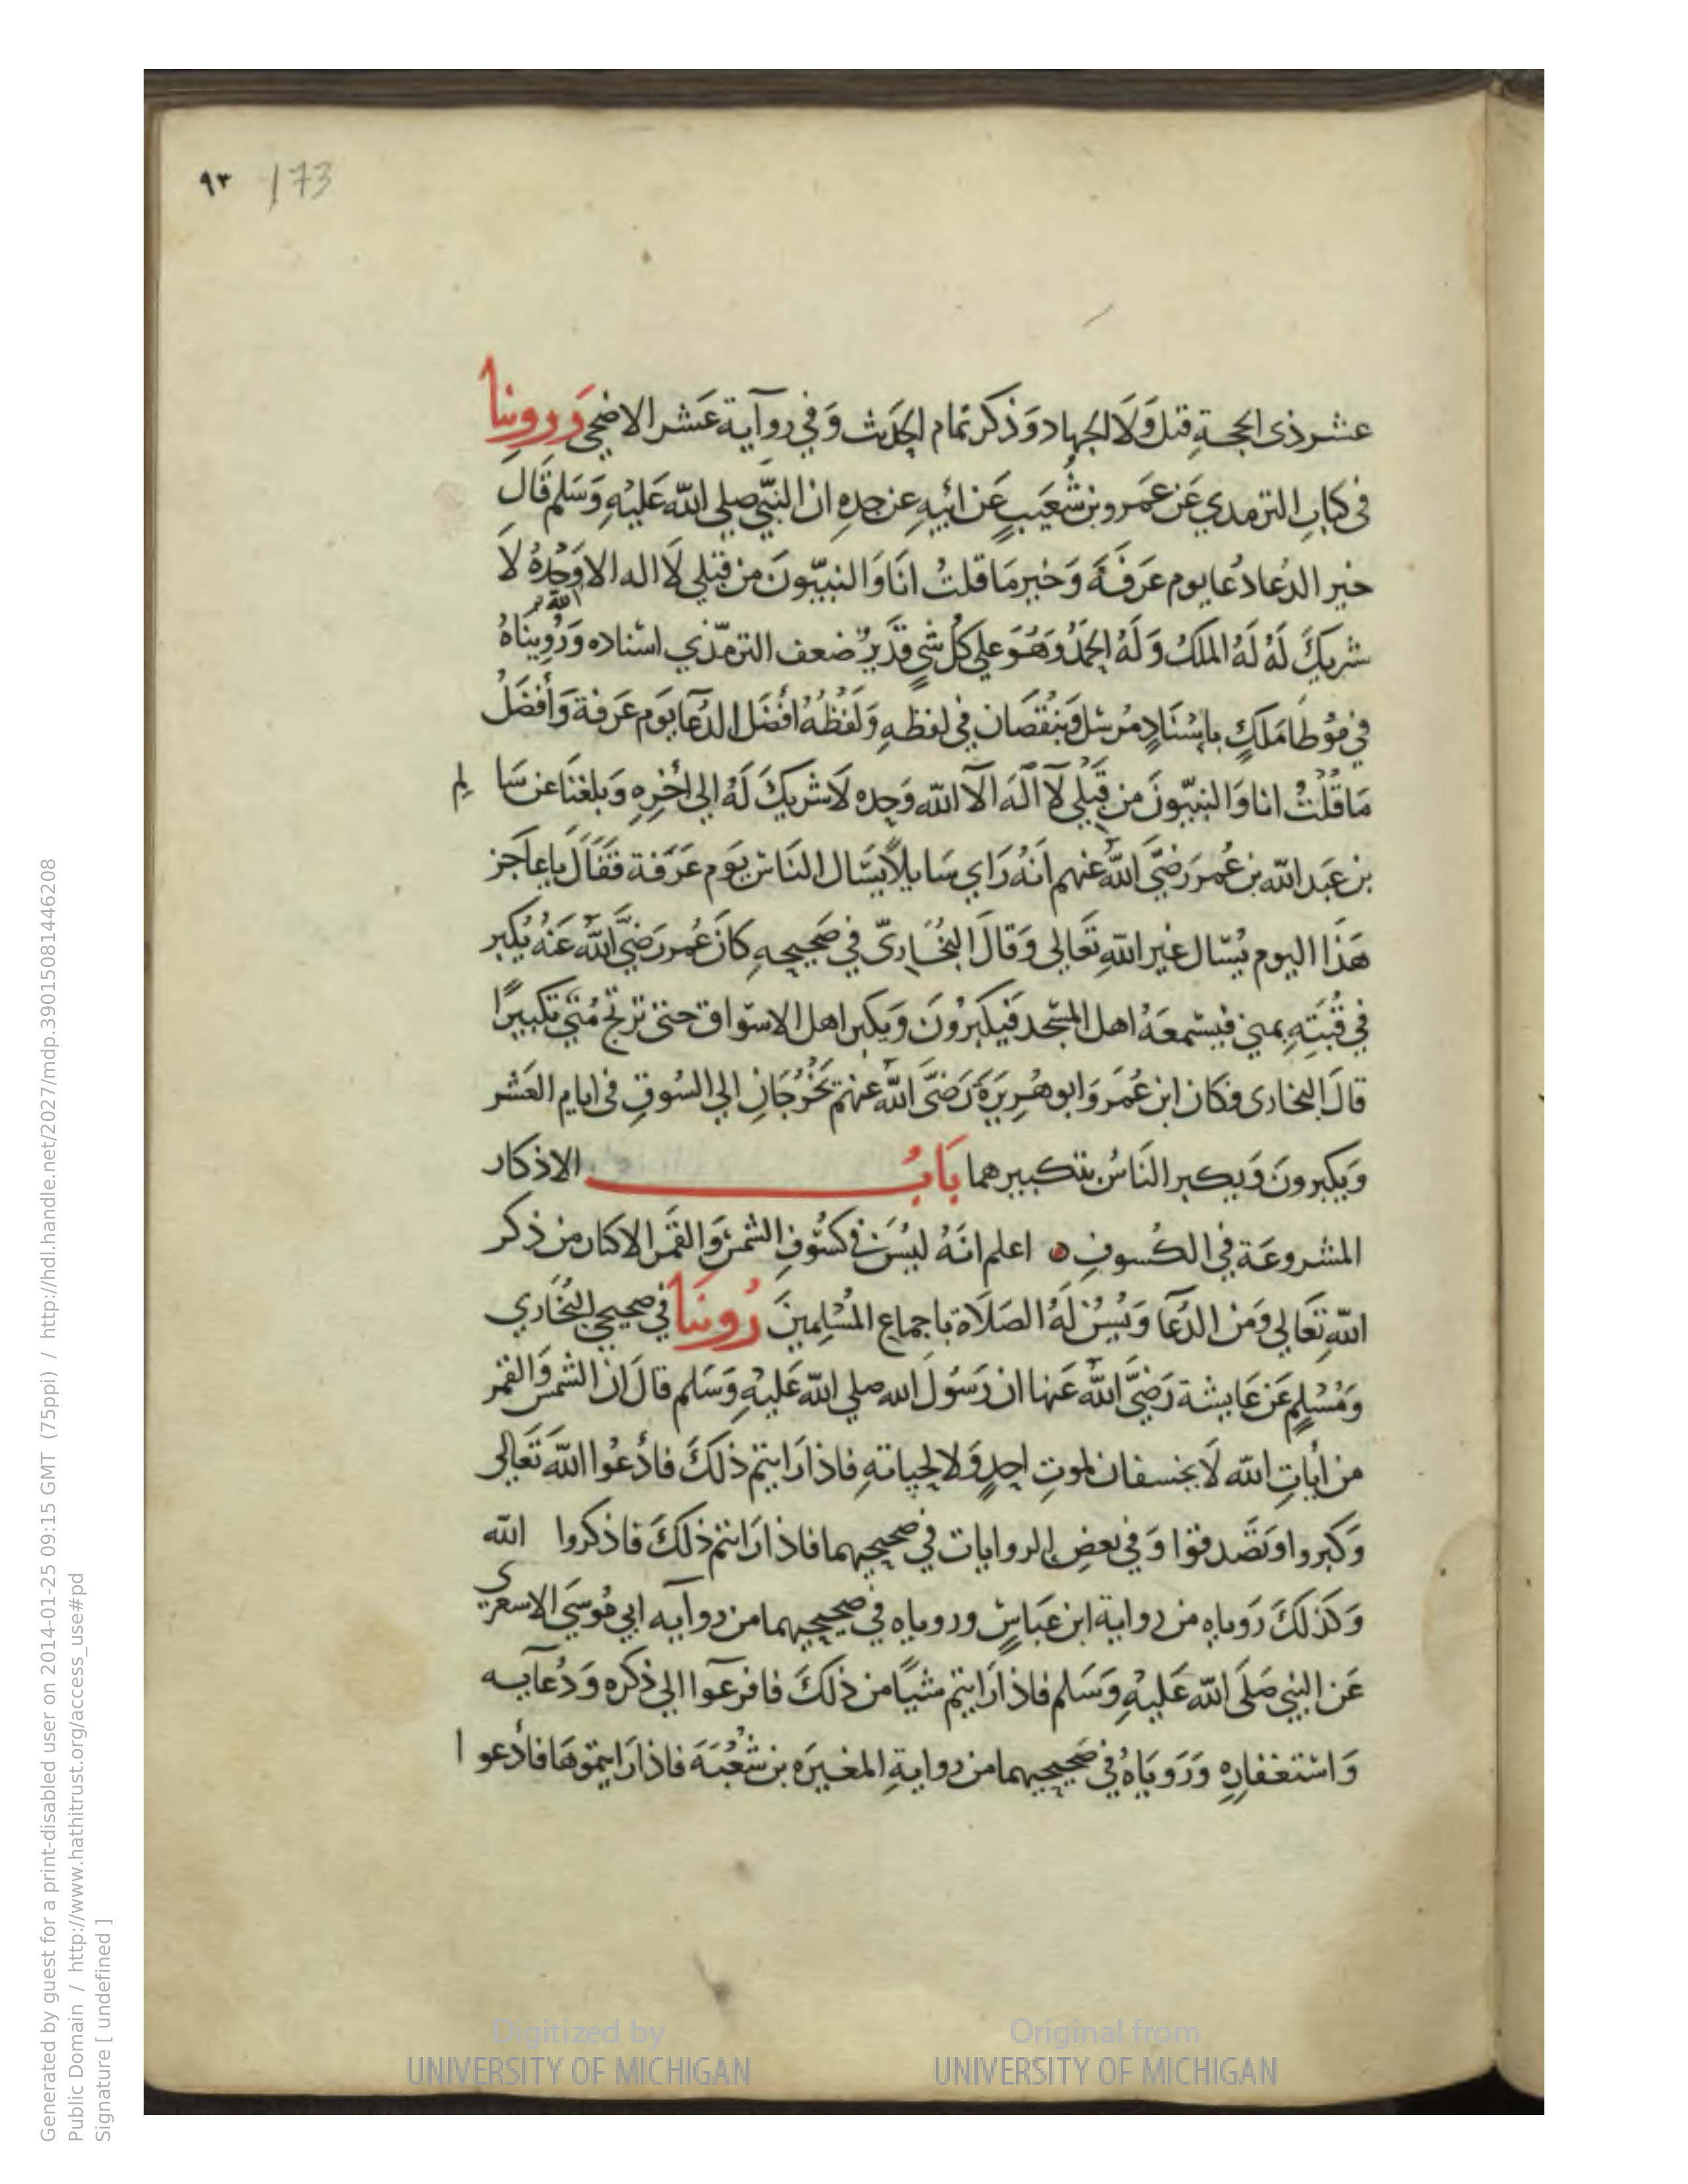 ٩٣ 173
عشر ذى الحجة قبل وَلَا الجهاد وَذكر تمام الحَدَيث وَفي روآية عَشر الاضحي وَروينا
فى كتابِ الترمدي عَن عَمَرو بن شُعَيبٍ عَن ابيهِ عن جدهِ ان النبَّي صلي الله عَليْهِ وَسَلم قَال
خير الدعا دُعا يوم عَرَفَةَ وَخير مَا قلتُ انَا وَالنبيّونَ من قبلي لَا اله الا الله وَحْدهُ لَا
شريكَ لَهُ لَهُ الملكُ وَلَهُ الحَمدُ وَهُوَ علي كل شيٍ قدَيرٌ ضعف الترمّذي اسناده وَرُوِينَاهُ
في مُوطا مَلَكٍ باِسْنَادٍ مُرسَل وَبنُقصَان في لفظهِ وَلَفظُهُ أفضَل الدعآ يَوم عَرَفة وَأفضَلُ
مَا قُلْتُ انا وَالنبيّونَ من قَبْلي لَآ الَه الَا الله وَحده لَا شريكَ لَهُ الي اخِرِهِ وَبلغنَا عن سَا لم
بن عَبَد الله بن عُمر رَضيَّ اللهُ عنهم انَهُ رَاي سَايلاً يسَال النَاسَ يَوم عَرَفة فقَالَ يا عَاجز
هَذا اليوم يُسّال غير اللهِ تَعَالى وَقالَ البُخَاريّ في صَحيحهِ كانَ عُمر رَضيَّ اللهُ عَنهُ يُكبر
في قُبَتَهِ بمني فيسْمعَهُ اهل المسجد فَيكبَرُونَ وَيكبر اهل الاسوَاق حتى ترتجَ مُنَي تكبيرًا
قالَ البخارى فكان ابن عُمَر وَابو هُريَرَةَ رَضيَّ اللهُ عنهم يَخْرُجَانِ الي السُوقِ فى ايام العَشر
وَيكبرونَ وَيكبر النَاسُ بتكبيرهما بَابُ الاذكار
المشروعَة في الكُسوفِ ٥ اعلم انَهُ ليُسَن في كسُوفِ الشمسَ وَالقمَر الاكثار من ذكر
اللهِ تَعَالي وَمَن الدُعَآ وَيُسُن لَهُ الصَلَاة باجماع المُسْلمِينَ رُوينَا في صحيحي البُخَاري
وَمُسْلمٍ عَن عَايشة رَضيَّ اللهُ عَنها ان رَسُول الله صلي الله عَليْهِ وَسَلم قالَ ان الشمسَ وَالقمر
من ايَاتِ الله لَا يخسفان لموتِ احدٍ وَلا لحيَاتهِ فاذا رَايتم ذلكَ فادْعُوا اللهَ تَعَالي
وَكبروا وَتصَدقوا وَفي بعضِ الروايات في صحيحيهما فاذا رَايتم ذَلكَ فاذكروا الله
وَكذلكَ رَويناه من رواية ابن عَبَاسٍ ورويناه في صحيحيهما من روآيه ابي مُوسَي الاسعرى
عَن النبي صَلَى الله عَليْهِ وَسَلم فاذا رَايتم شيًا من ذلكَ فافزعوا الي ذكره وَدُعآيه
وَاسْتغفارهِ وَرَويَناهُ في صَحيحيهما من روايةِ المغيرَه بن شُعْبَةَ فاذا رَايتموهَا فادْعو ا
Digitized by
UNIVERSITY OF MICHIGAN
Original from
UNIVERSITY OF MICHIGAN
Generated by guest for a print-disabled user on 2014-01-25 09:15 GMT (75ppi) / http://hdl.handle.net/2027/mdp.39015081446208
Public Domain / http://www.hathitrust.org/access_use#pd
Signature [ undefined ]